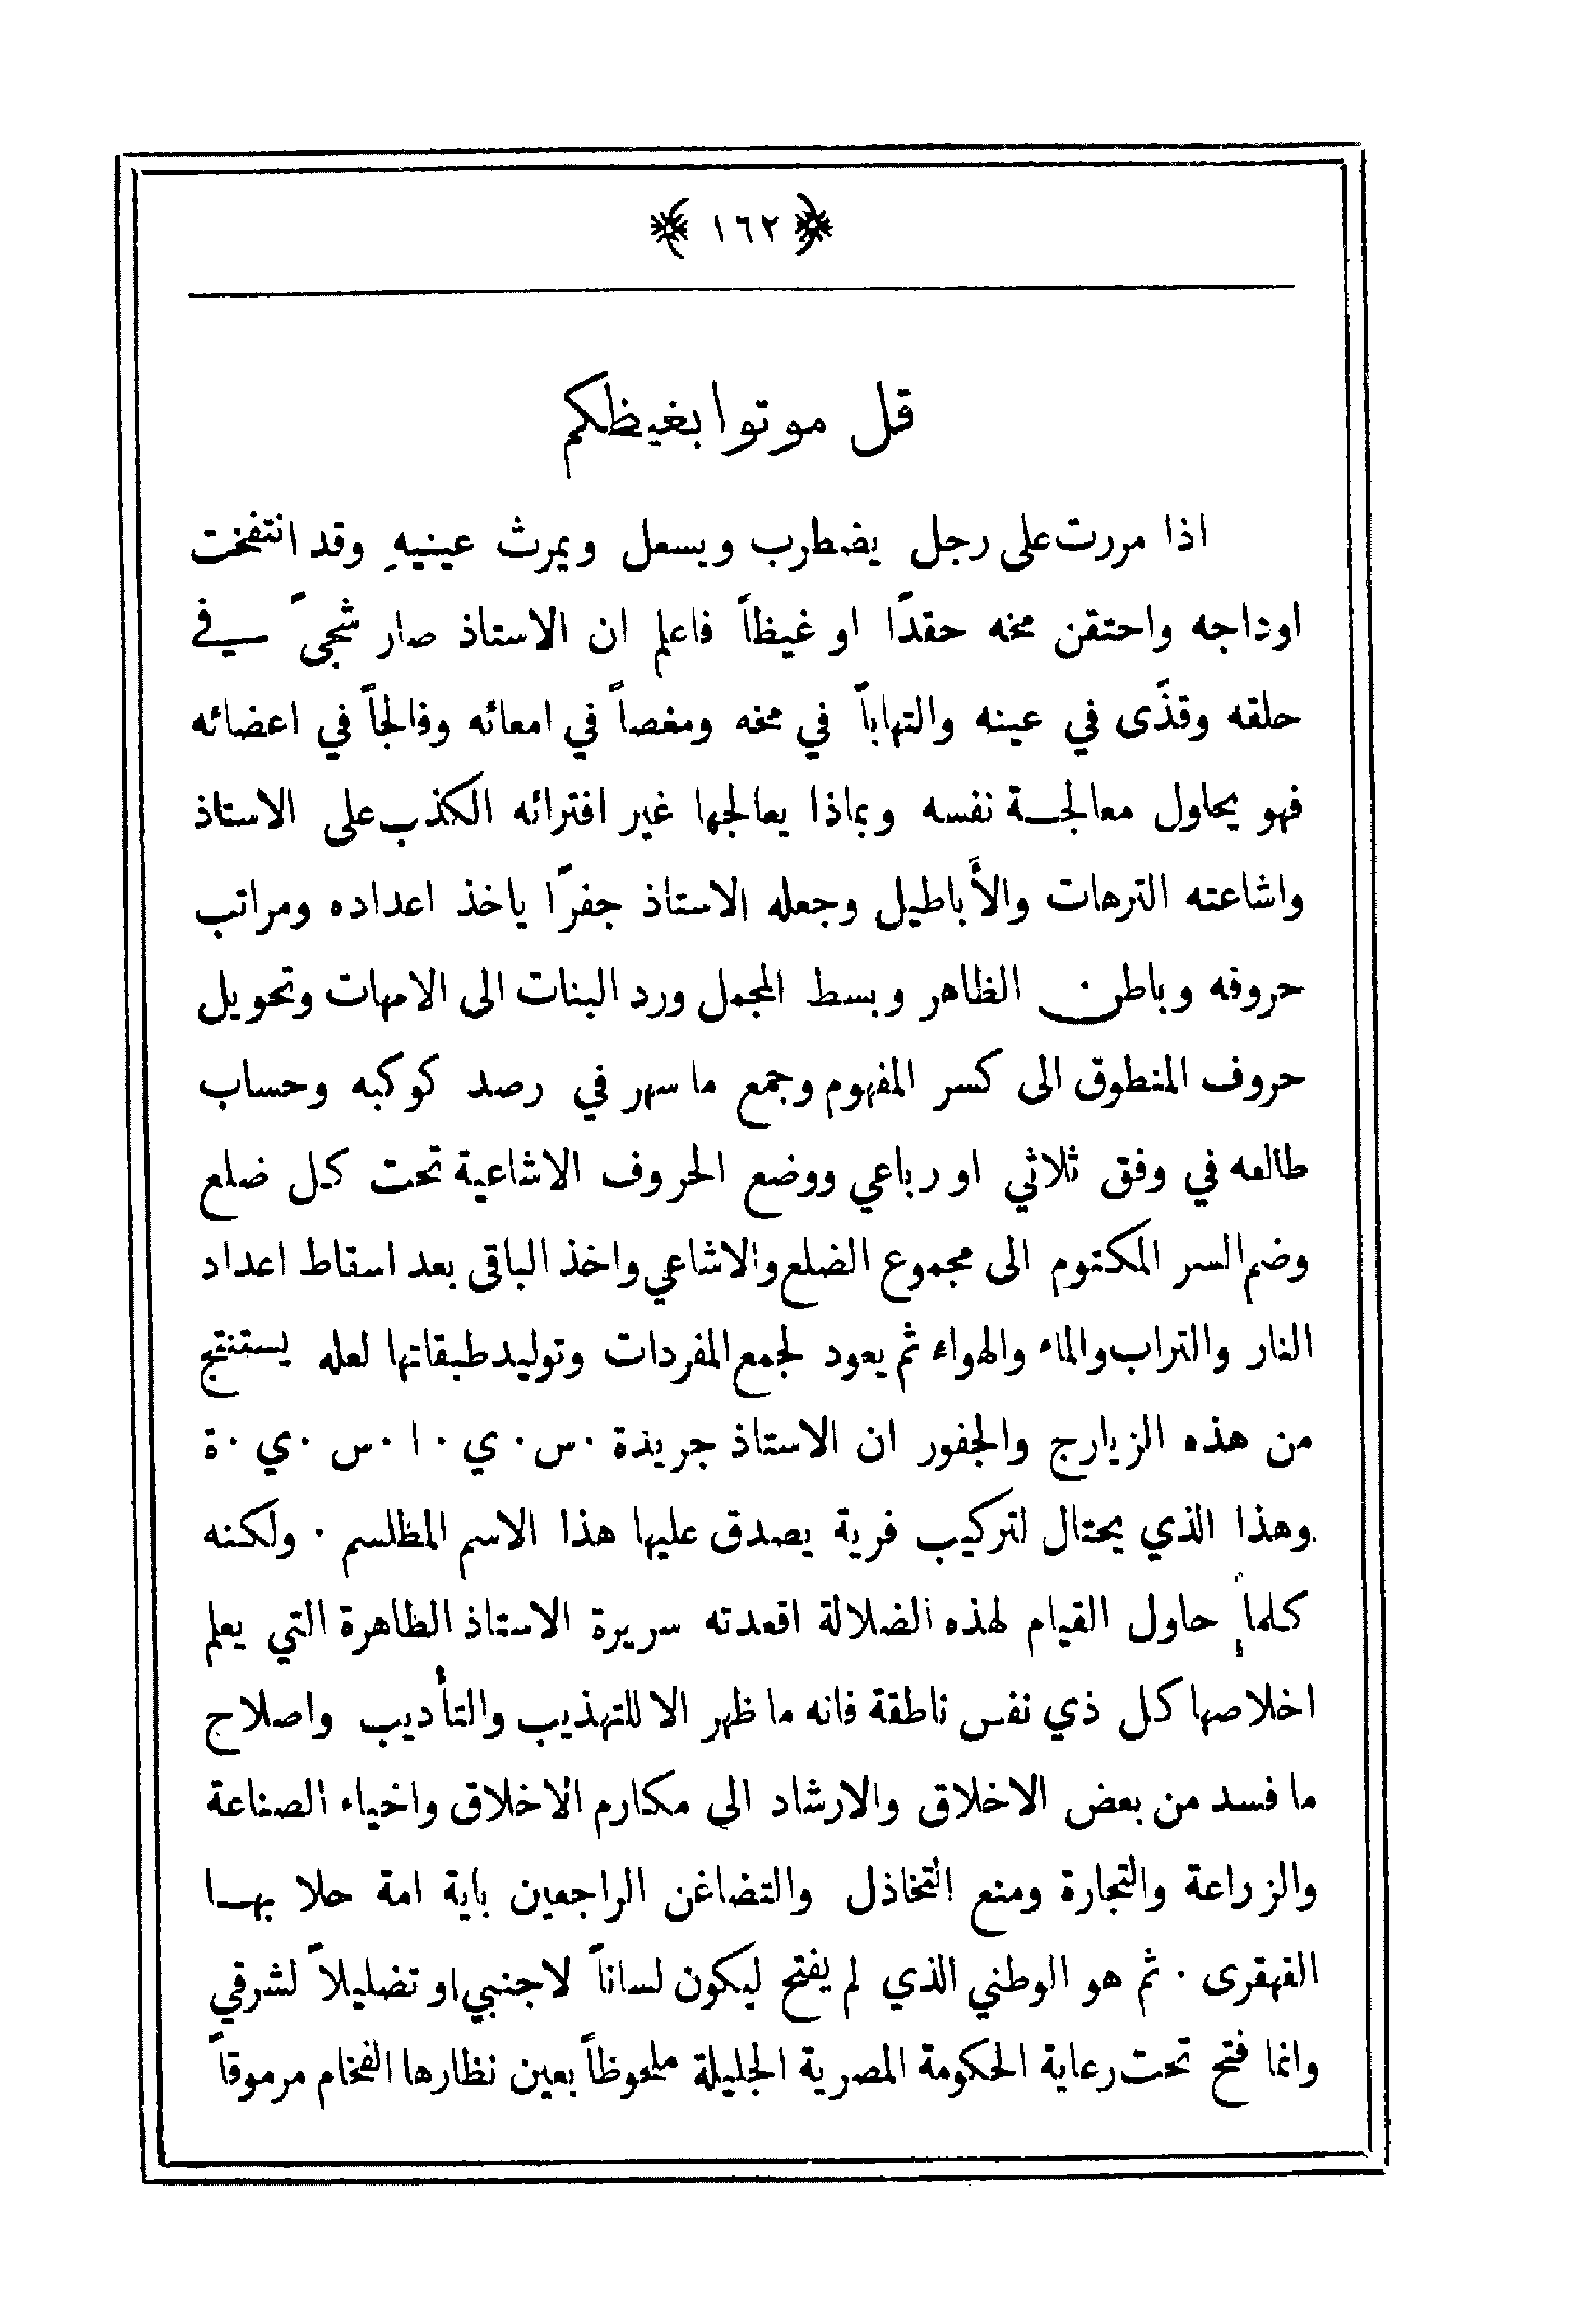 ﴿ ١٦٢ ﴾
قل موتوا بغيظكم
اذا مررت على رجل يضطرب ويسعل ويمرث عينيهِ وقد انتفخت
اوداجه واحتقن مخه حقدًا او غيظاً فاعلم ان الاستاذ صار شجىً في
حلقه وقذًى في عينه والتهاباً في مخه ومغصاً في امعائه وفالجاً في اعضائه
فهو يحاول معالجة نفسه وبماذا يعالجها غير افترائه الكذب على الاستاذ
واشاعته الترهات والأباطيل وجعله الاستاذ جفرًا ياخذ اعداده ومراتب
حروفه وباطن الظاهر وبسط المجمل ورد البنات الى الامهات وتحويل
حروف المنطوق الى كسر المفهوم وجمع ما سهر في رصد كوكبه وحساب
طالعه في وفق ثلاثي او رباعي ووضع الحروف الاشاعية تحت كل ضلع
وضم السر المكتوم الى مجموع الضلع والاشاعي واخذ الباقي بعد اسقاط اعداد
النار والتراب والماء والهواء ثم يعود لجمع المفردات وتوليد طبقاتها لعله يستنتج
من هذه الزيارج والجفور ان الاستاذ جريدة ٠س٠ ي ٠ا ٠س ٠ي ٠ة
وهذا الذي يحتال لتركيب فرية يصدق عليها هذا الاسم المطلسم ٠ ولكنه
كلما حاول القيام لهذه الضلالة اقعدته سريرة الاستاذ الظاهرة التي يعلم
اخلاصها كل ذي نفس ناطقة فانه ما ظهر الا للتهذيب والتأديب واصلاح
ما فسد من بعض الاخلاق والارشاد الى مكارم الاخلاق واحياء الصناعة
والزراعة والتجارة ومنع التخاذل والتضاغن الراجعين باية امة حلا بهـا
القهقرى ٠ ثم هو الوطني الذي لم يفتح ليكون لساناً لاجنبي او تضليلاً لشرقي
وانما فتح تحت رعاية الحكومة المصرية الجليلة ملحوظاً بعين نظارها الفخام مرموقاً